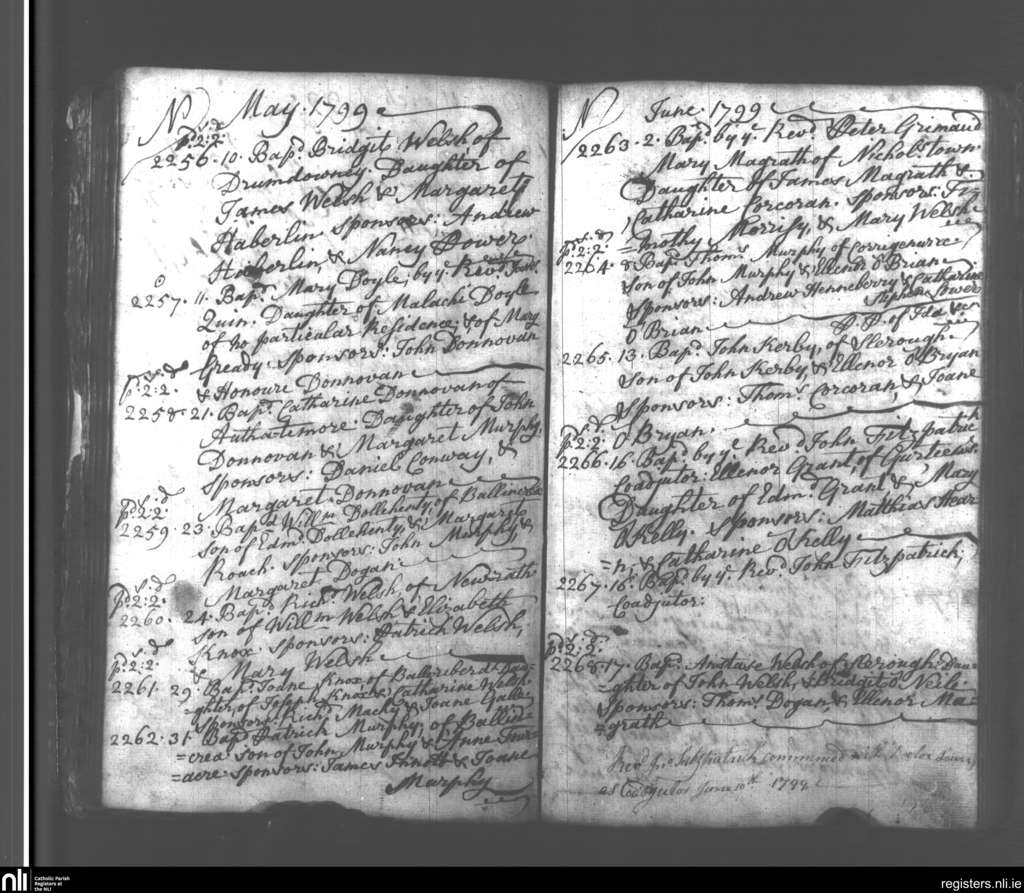 No May. 1799
s. d
pd 2:2.
2256. 10. Bapd. Bridgit Welsh of
Drumdowney. Daughter of
James Welsh & Margaret
Haberlin. Sponsors: Andrew
Haberlin, & Nancy Power.
2257. 11. Bapd. Mary Doyle, by ye. Revd.
Quin. Daughter of Malachi Doyle
of no particular Residence: & of Mary
Gready. Sponsors: John Donnovan
s. d
pd 2:2. & Honoure Donnovan
2258. 21. Bapd. Catharine Donnovan of
Authatimore. Daughter of John
Donnovan & Margaret Murphy.
Sponsors: Daniel Conway, &
s. d
pd 2:2 Margaret Donnovan
2259. 23. Bapd. Willm. Dollehenty, of
son of Edmd. Dollehenty, & Margaret
Roach. Sponsors: John Murphy, &
Margaret Dogan.
s. d
pd 2:2.
2260. 24. Bapd. Richd. Welsh, of Newrath
son of Willm Welsh & Elizabeth
Knox. Sponsors: Patrick Welsh,
s. d
pd 2:2. & Mary Welsh
2261. 29. Bapd. Joane Knox of
=ghter of Knox & Catharine Welsh.
Sponsors: Richd. Mackey & Joane
2262. 31. Bapd. Patrick Murphy, of Ballin=
=crea son of John Murphy & Anne
=acre. Sponsors: James & Joane
Murphy
No June. 1799
2263. 2. Bapd. by ye. Revd. Peter Grimaud
Mary Magrath of Nichols:town.
Daughter of James Magrath &
Catharine Corcoran. Sponsors: Ti=
=mothy Morrisy, & Mary Welsh
s. d
pd 2:2.
2264. 8 Bapd. Thoms. Murphy of Corrigenurra
son of John Murphy & Elenor O Brian
Sponsors: Andrew Henneberry & Catharine
O Brian
Stephen Lower
P. P. of Ida &c.
2265. 13. Bapd. John Kerby, of Slerough.
Son of John Kerby, & Ellenor O Bryan
Sponsors: Thoms. Corcoran, & Joane
s. d
pd 2:2. O Bryan.
2266. 16. Bapd. by ye. Revd. John Fitzpatrick
Coadjutor: Ellenor Grant, of Gurteens.
Daughter of Edmd. Grant & Mary
O Kelly. Sponsors: Matthias Hear
=n, & Catharine O Kelly
2267. 16. Bapd. by ye. Revd. John Fitzpatrick,
Coadjutor:
s. d
pd 2:2.
2268. 17. Bapd. Anstase Welsh of Slerough. Dau=
=ghter of John Welsh, & Bridgit O Neile
Sponsors: Thoms. Dogan, & Ellenor Ma=
=grath
Revd. Jno. Fitzpatrick commenced
as Coadjutor June 10th. 1799
nli
Catholic Parish
Registers at
the NLI
registers.nli.ie